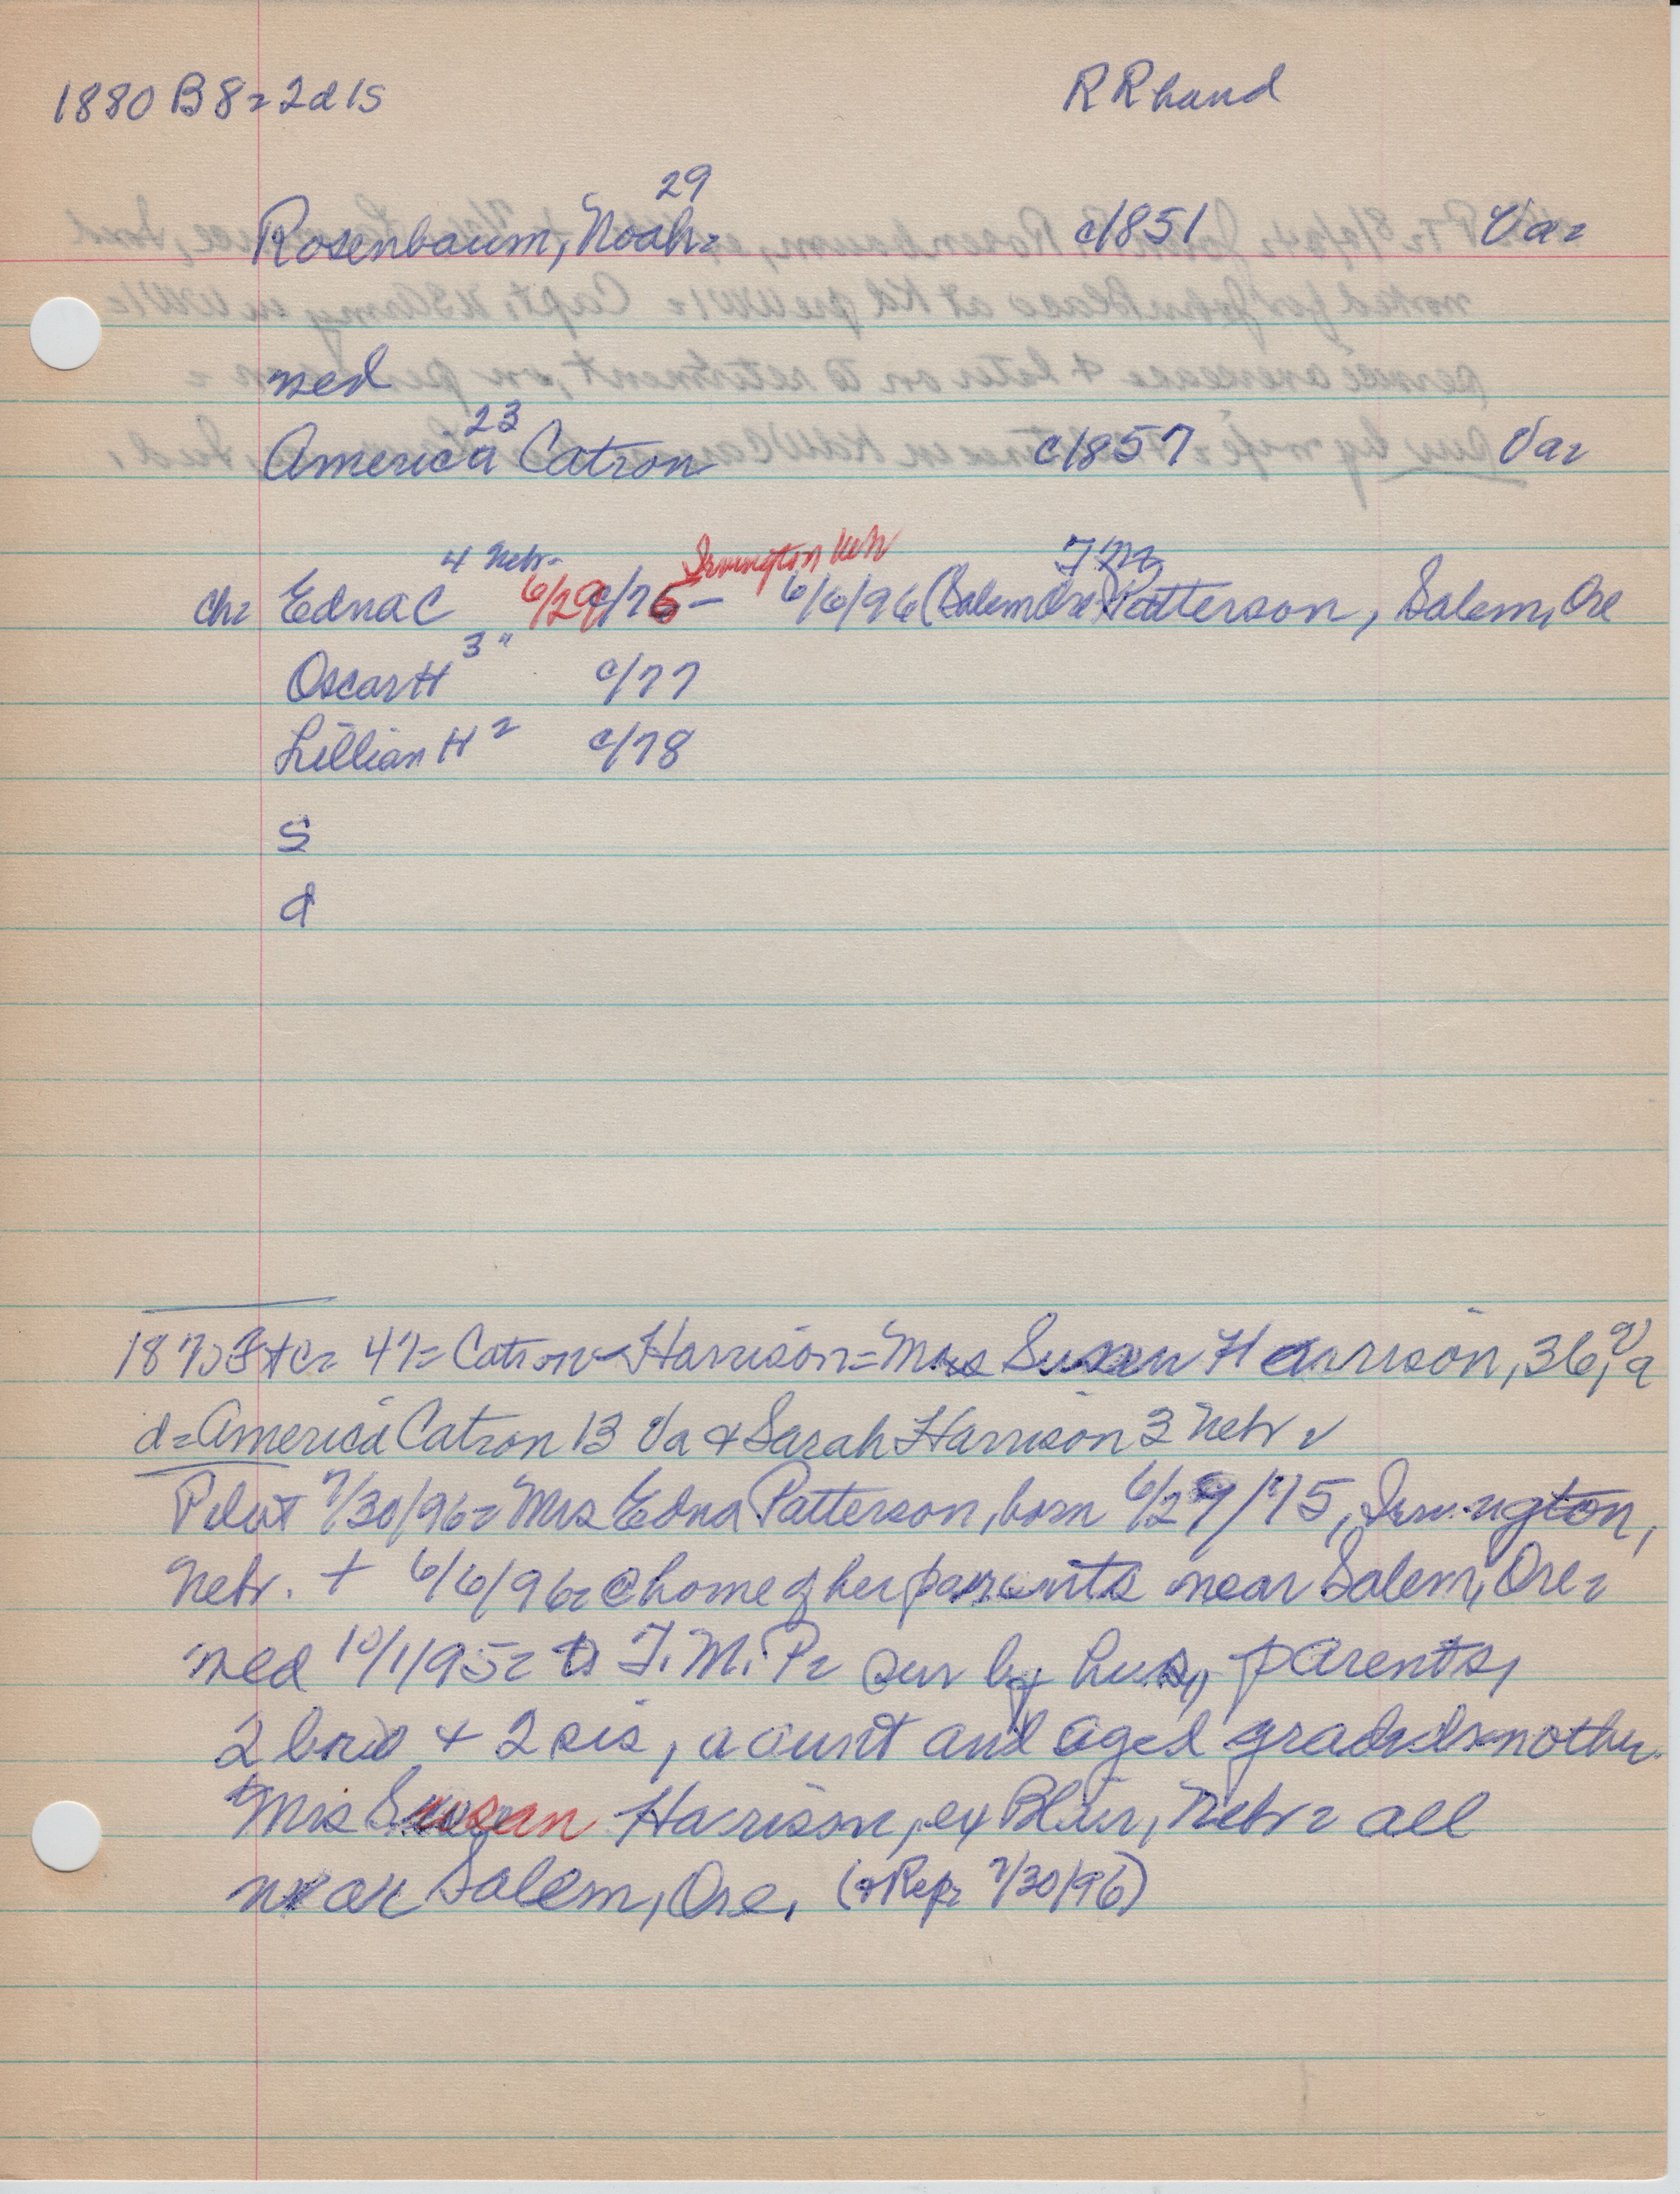 1880 B8= 2d1s RR hand
29
Rosenbaum, Noah= c/1851 Va=
med
23
America Catron c/1857 Va=
4 Nebr- Irvington Neb F M
ch= Edna C 6/29 c/75 – 6/6/96 (Salem Ore Patterson, Salem, Ore
3 "
Oscar H c/77
Lillian H 2 c/78
s
d
47= Catron-Harrison= Mrs Susan Harrison, 36, Va
d= America Catron 13 Va & Sarah Harrison 3 Nebr
Pilot 7/30/96= Mrs Edna Patterson, born 6/29/75, Irvington,
Nebr. + 6/6/96= @ home of her parents near Salem, Ore=
med 10/1/95= to F. M. P= sur by hus, parents,
2 bros + 2 sis, a aunt and aged grandmother
Mrs Susan Harrison, ex Blair, Nebr= all
near Salem, Ore. (+Rep= 7/30/96)